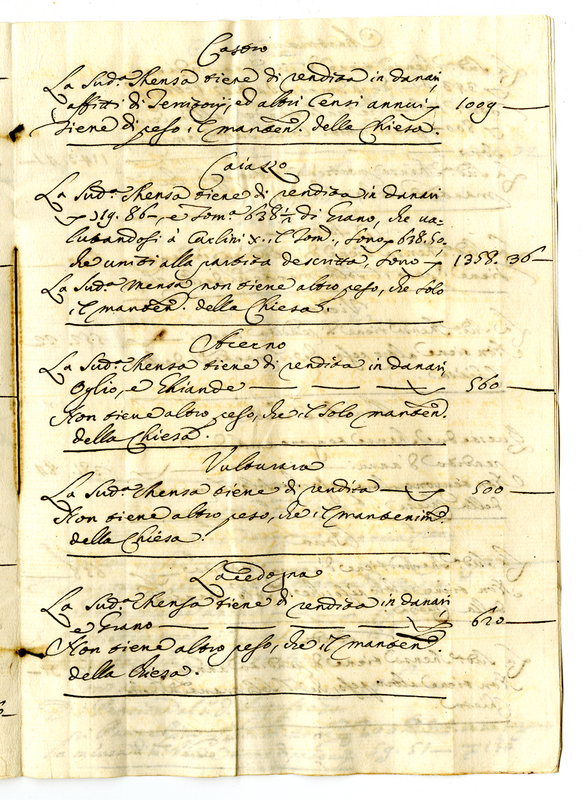 Castro
La Sud.ª Mensa tiene di rendita in danari
affitti di Territorij, ed altri Censi annui 1009
tiene di peso il manten.º della Chiesa.
Caiazzo
La Sud.ª Mensa tiene di rendita in danari
719.86, e tom.ª 638½ di Grano, che va-
lutandosi à Carlini X. il tom.º, sono 638.50.
che uniti alla partita descritta, sono 1358.36
La Sud.ª Mensa non tiene altro peso, che solo
il manten.º della Chiesa.
Acerno
La Sud.ª Mensa tiene di rendita in danari
Oglio, e Ghiande 560
Non tiene altro peso, che il Solo manten.º
della Chiesa.
Vulturara
La Sud.ª Mensa tiene di rendita 500
Non tiene altro peso, che il mantenim.º
della Chiesa.
Lacedogna
La Sud.ª Mensa tiene di rendita in danari
e Grano 620
Non tiene altro peso, che il manten.º
della Chiesa.